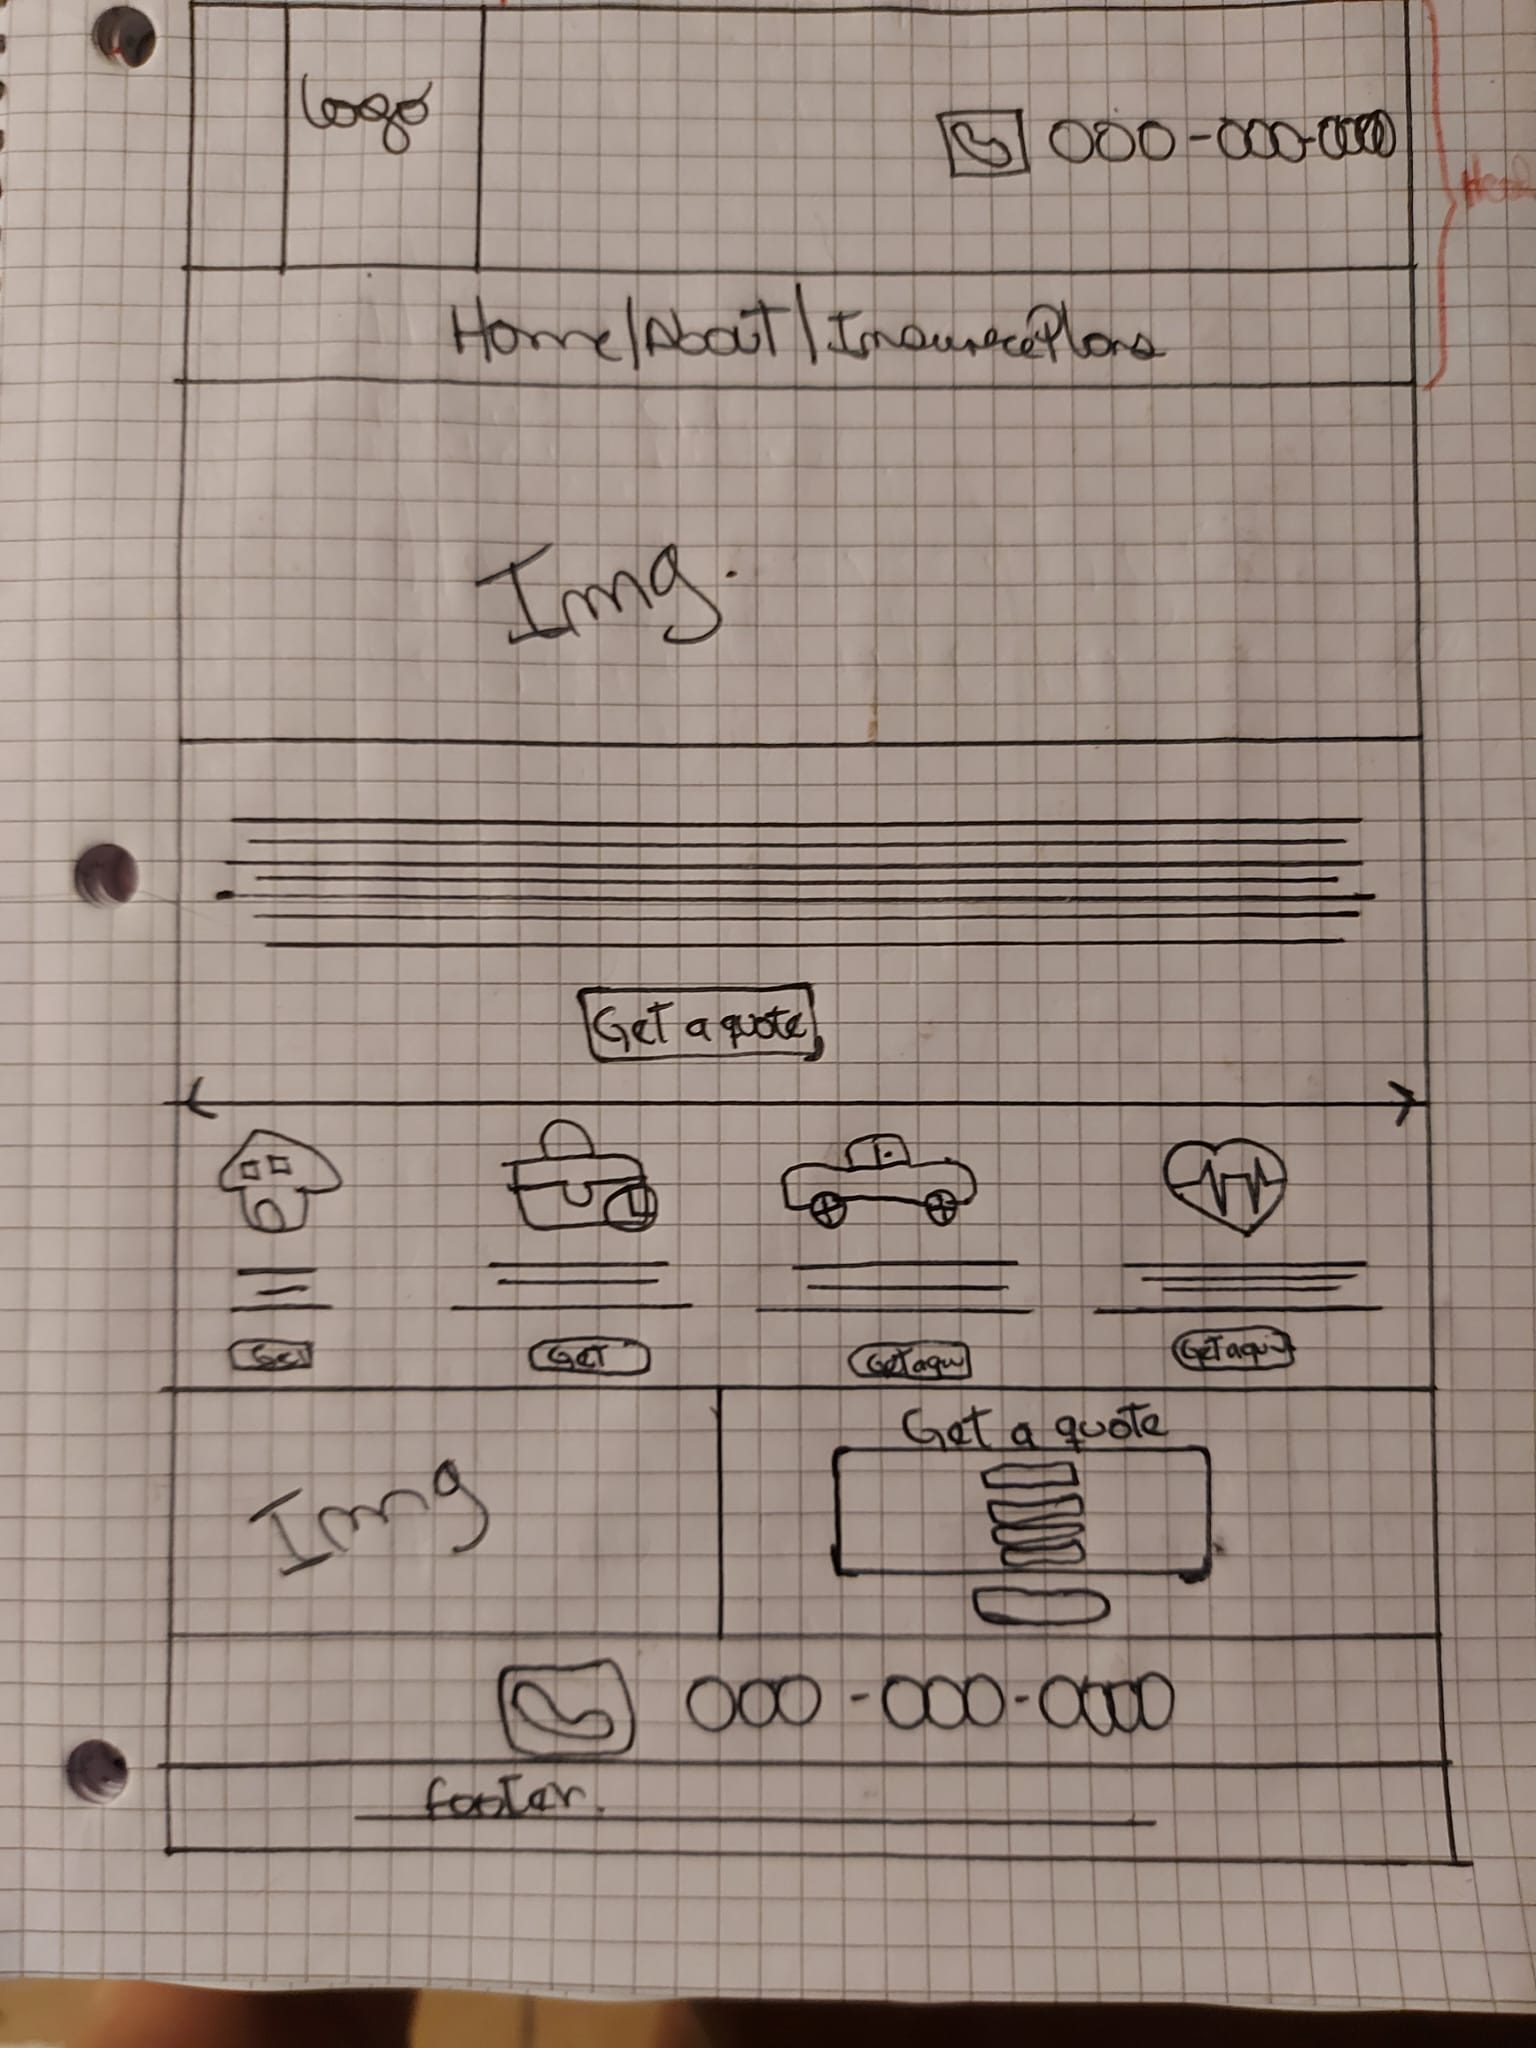 Logo
000-000-0000
Home/About/InsurecePlans
Img.
Get a quote
Get
GET
Get aqu
Get aqu
Img
Get a quote
000-000-0000
footer.